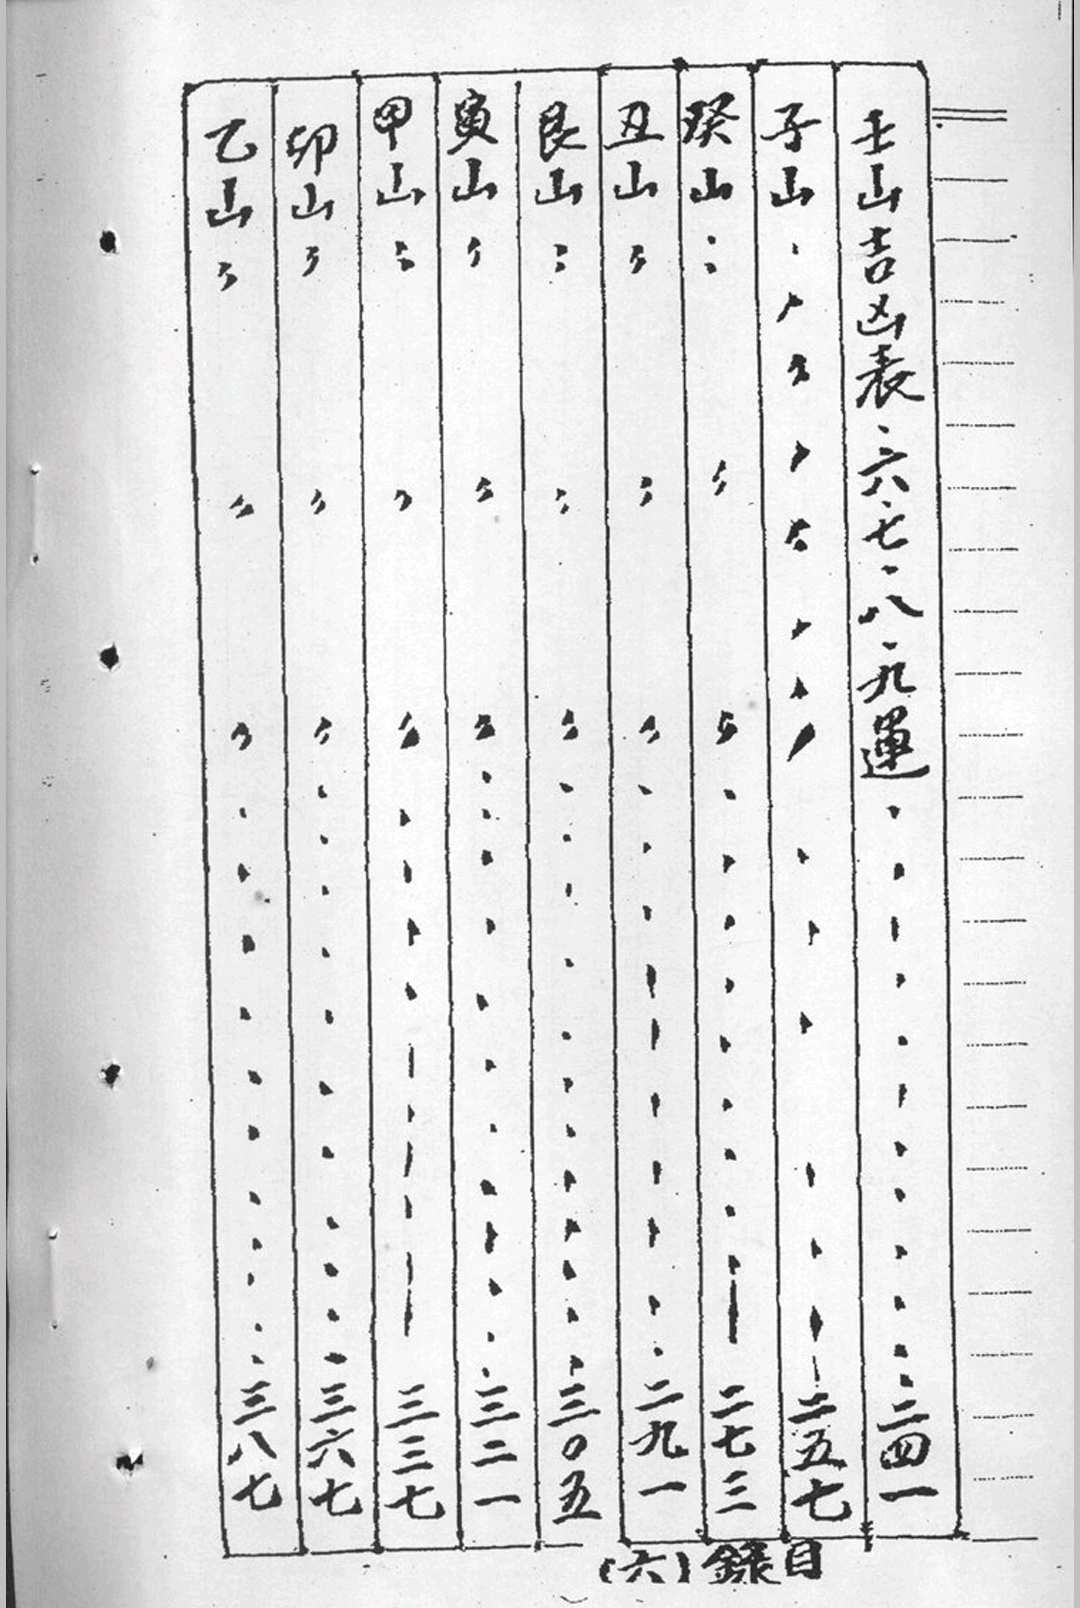 壬山吉凶表、六、七、八、九運 二四一
子山 二五七
癸山 二七三
丑山 二九一
艮山 三〇五
寅山 三二一
甲山 三三七
卯山 三六七
乙山 三八七
目錄(六)